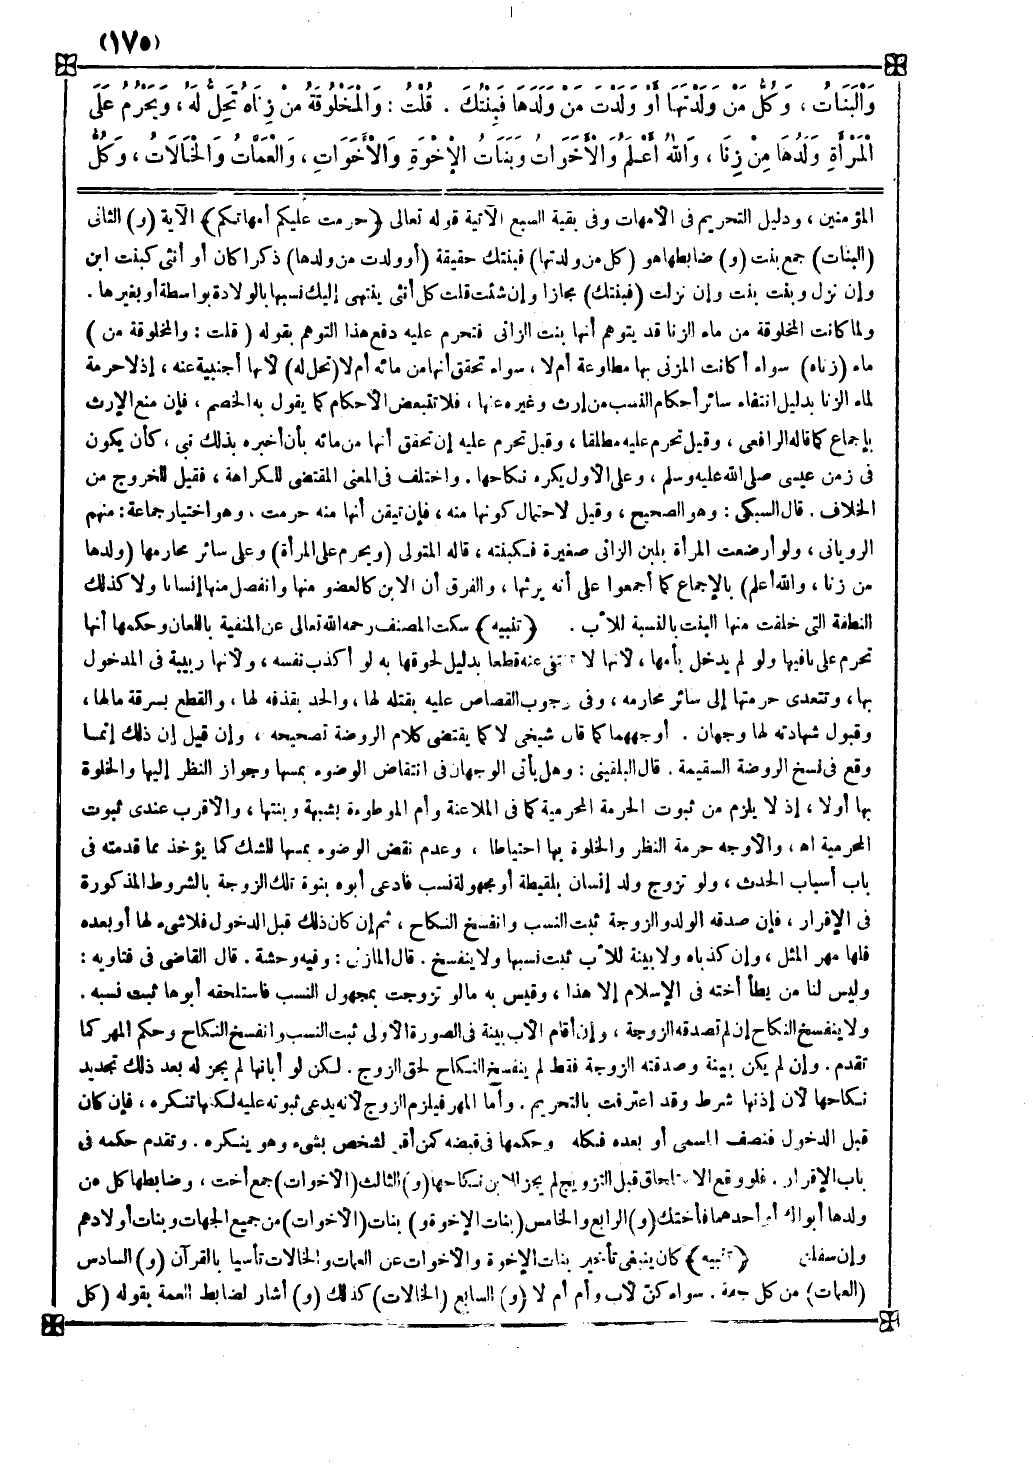 (١٧٥)
وَالْبَنَاتُ ، وَكُلُّ مَنْ وَلَدْتَهَا أَوْ وَلَدْتَ مَنْ وَلَدَهَا فَبِنْتُكَ . قُلْتُ : وَالْمَخْلُوقَةُ مِنْ زِنَاهُ تَحِلُّ لَهُ ، وَيَحْرُمُ عَلَى
الْمَرْأَةِ وَلَدُهَا مِنْ زِنًا ، وَاللهُ أَعْلَمُ وَالْأَخَوَاتُ وَبَنَاتُ الْإِخْوَةِ وَالْأَخَوَاتِ ، وَالْعَمَّاتُ وَالْخَالَاتُ ، وَكُلُّ
المؤمنين ، ودليل التحريم فى الأمهات وفى بقية السبع الآتية قوله تعالى (حرمت عليكم أمهاتكم) الآية (و) الثانى
(البنات) جمع بنت (و) ضابطها هو (كل من ولدتها) فبنتك حقيقة (أو ولدت من ولدها) ذكرا كان أو أنثى كبنت ابن
وإن نزل وبنت بنت وإن نزلت (فبنتك) مجازا وإن شئت قلت كل أنثى ينتهى إليك نسبها بالولادة بواسطة أو بغيرها .
ولما كانت المخلوقة من ماء الزنا قد يتوهم أنها بنت الزانى فتحرم عليه دفع هذا التوهم بقوله ( قلت : والمخلوقة من )
ماء (زناه) سواء أكانت المزنى بها مطاوعة أم لا ، سواء تحقق أنها من مائه أم لا (تحل له) لأنها أجنبية عنه ، إذ لا حرمة
لماء الزنا بدليل انتفاء سائر أحكام النسب من إرث وغيره عنها ، فلا تتبعض الأحكام كما يقول به الخصم ، فإن منع الإرث
بإجماع كما قاله الرافعى ، وقيل تحرم عليه مطلقا ، وقيل تحرم عليه إن تحقق أنها من مائه بأن أخبره بذلك نبى ، كأن يكون
فى زمن عيسى صلى الله عليه وسلم ، وعلى الأول يكره نكاحها . واختلف فى المعنى المقتضى للكراهة ، فقيل للخروج من
الخلاف . قال السبكى : وهو الصحيح ، وقيل لاحتمال كونها منه ، فإن تيقن أنها منه حرمت ، وهو اختيار جماعة : منهم
الرويانى ، ولو أرضعت المرأة بلبن الزانى صغيرة فكبنته ، قاله المتولى (ويحرم على المرأة) وعلى سائر محارمها (ولدها
من زنا ، والله أعلم) بالإجماع كما أجمعوا على أنه يرثها ، والفرق أن الابن كالعضو منها وانفصل منها إنسانا ولا كذلك
النطفة التى خلقت منها البنت بالنسبة للأب . (تنبيه) سكت المصنف رحمه الله تعالى عن المنفية باللعان وحكمها أنها
تحرم على نافيها ولو لم يدخل بأمها ، لأنها لا تنتفى عنه قطعا بدليل لحوقها به لو أكذب نفسه ، ولأنها ربيبة فى المدخول
بها ، وتتعدى حرمتها إلى سائر محارمه ، وفى وجوب القصاص عليه بقتله لها ، والحد بقذفه لها ، والقطع بسرقة مالها ،
وقبول شهادته لها وجهان . أوجههما كما قال شيخى لا كما يقتضى كلام الروضة تصحيحه ، وإن قيل إن ذلك إنما
وقع فى نسخ الروضة السقيمة . قال البلقينى : وهل يأتى الوجهان فى انتقاض الوضوء بمسها وجواز النظر إليها والخلوة
بها أولا ، إذ لا يلزم من ثبوت الحرمة المحرمية كما فى الملاعنة وأم الموطوءة بشبهة وبنتها ، والأقرب عندى ثبوت
المحرمية اه ، والأوجه حرمة النظر والخلوة بها احتياطا ، وعدم نقض الوضوء بمسها للشك كما يؤخذ مما قدمته فى
باب أسباب الحدث ، ولو تزوج ولد إنسان بلقيطة أو مجهولة نسب فادعى أبوه بنوة تلك الزوجة بالشروط المذكورة
فى الإقرار ، فإن صدقه الولد والزوجة ثبت النسب وانفسخ النكاح ، ثم إن كان ذلك قبل الدخول فلا شىء لها أو بعده
فلها مهر المثل ، وإن كذباه ولا بينة للأب ثبت نسبها ولا ينفسخ . قال المزنى : وفيه وحشة . قال القاضى فى فتاويه :
وليس لنا من يطأ أخته فى الإسلام إلا هذا ، وقيس به مالو تزوجت بمجهول النسب فاستلحقه أبوها ثبت نسبه .
ولا ينفسخ النكاح إن لم تصدقه الزوجة ، وإن أقام الأب بينة فى الصورة الأولى ثبت النسب وانفسخ النكاح وحكم المهر كما
تقدم . وإن لم يكن بينة وصدقته الزوجة فقط لم ينفسخ النكاح لحق الزوج . لكن لو أبانها لم يجز له بعد ذلك تجديد
نكاحها لأن إذنها شرط وقد اعترفت بالتحريم . وأما المهر فيلزم الزوج لأنه يدعى ثبوته عليه لكنها تنكره ، فإن كان
قبل الدخول فنصف المسمى أو بعده فكله وحكمها فى قبضه كمن أقر لشخص بشىء وهو ينكره . وتقدم حكمه فى
باب الإقرار . فلو وقع الاستلحاق قبل التزويج لم يجز للابن نكاحها (و) الثالث (الأخوات) جمع أخت ، وضابطها كل من
ولدها أبواك أو أحدهما فأختك (و) الرابع والخامس (بنات الإخوة و) بنات (الأخوات) من جميع الجهات وبنات أولادهم
وإن سفلن (تنبيه) كان ينبغى تأخير بنات الإخوة والأخوات عن العمات والخالات تأسيا بالقرآن (و) السادس
(العمات) من كل جهة . سواء كن لأب وأم أم لا (و) السابع (الخالات) كذلك (و) أشار لضابط العمة بقوله (كل